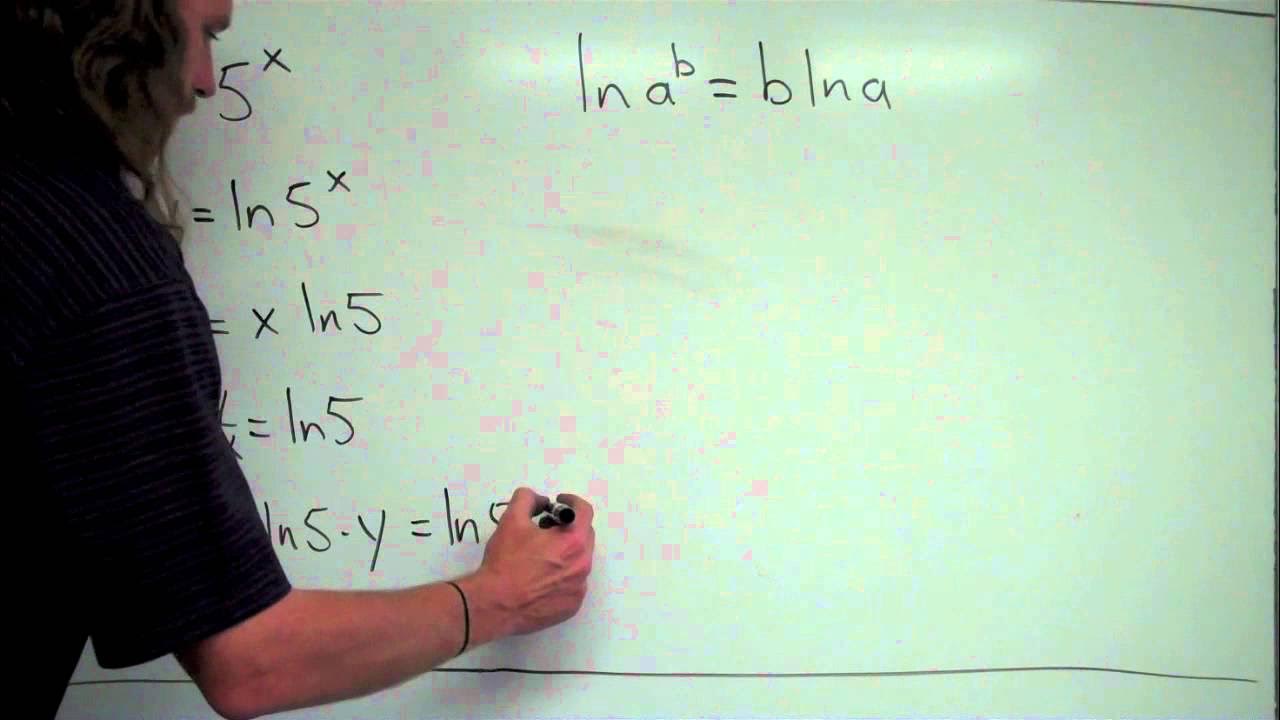 5^x
ln a^b = b ln a
= ln 5^x
= x ln 5
= ln 5
ln 5 · y = ln 5